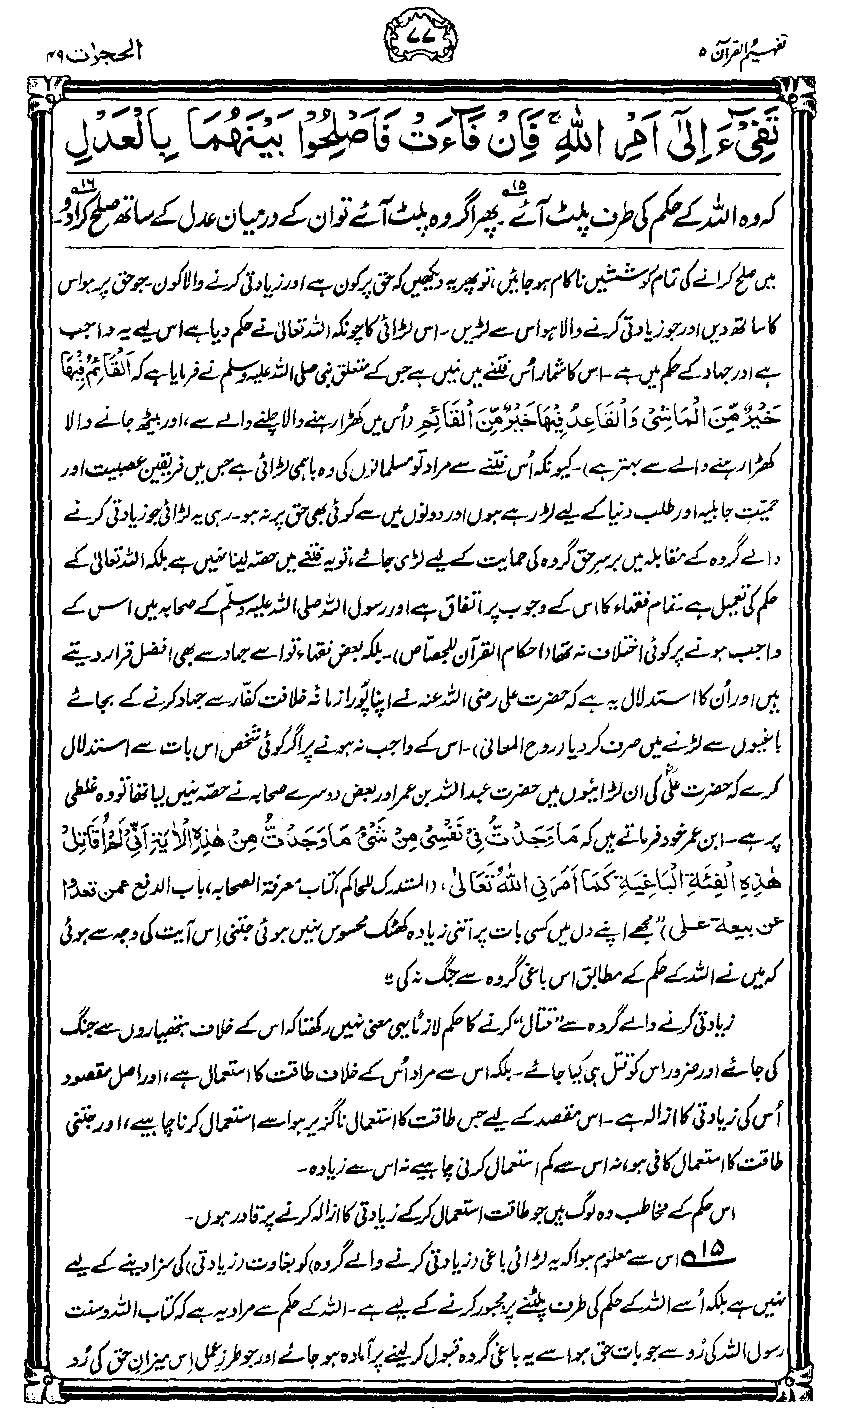 تفہیم القرآن ۵
۷۷
الحجرات ۴۹
تَفِیْٓءَ اِلٰٓی اَمْرِ اللّٰهِ ۚ فَاِنْ فَآءَتْ فَاَصْلِحُوْا بَیْنَهُمَا بِالْعَدْلِ
کہ وہ اللہ کے حکم کی طرف پلٹ آئے۔ ۱۵ پھر اگر وہ پلٹ آئے تو ان کے درمیان عدل کے ساتھ صلح کرا دو۔ ۱۶
میں صلح کرانے کی تمام کوششیں ناکام ہو جائیں، تو پھر یہ دیکھیں کہ حق پر کون ہے اور زیادتی کرنے والا کون۔ جو حق پر ہو اس
کا ساتھ دیں اور جو زیادتی کرنے والا ہو اس سے لڑیں۔ اس لڑائی کا چونکہ اللہ تعالیٰ نے حکم دیا ہے اس لیے یہ واجب
ہے اور جہاد کے حکم میں ہے۔ اس کا شمار اُس فتنے میں نہیں ہے جس کے متعلق نبی صلی اللہ علیہ وسلم نے فرمایا ہے کہ اَلْقَائِمُ فِیْهَا
خَیْرٌ مِّنَ الْمَاشِیْ وَالْقَاعِدُ فِیْهَا خَیْرٌ مِّنَ الْقَائِمِ (اُس میں کھڑا رہنے والا چلنے والے سے، اور بیٹھ جانے والا
کھڑا رہنے والے سے بہتر ہے)۔ کیونکہ اُس فتنے سے مراد تو مسلمانوں کی وہ باہمی لڑائی ہے جس میں فریقین عصبیت اور
حمیتِ جاہلیہ اور طلب دنیا کے لیے لڑ رہے ہوں اور دونوں میں سے کوئی بھی حق پر نہ ہو۔ رہی یہ لڑائی جو زیادتی کرنے
والے گروہ کے مقابلہ میں برسرِ حق گروہ کی حمایت کے لیے لڑی جائے، تو یہ فتنے میں حصہ لینا نہیں ہے بلکہ اللہ تعالیٰ کے
حکم کی تعمیل ہے۔ تمام فقہاء کا اس کے وجوب پر اتفاق ہے اور رسول اللہ صلی اللہ علیہ وسلم کے صحابہ میں اس کے
واجب ہونے پر کوئی اختلاف نہ تھا (احکام القرآن للجصاص)۔ بلکہ بعض فقہاء تو اسے جہاد سے بھی افضل قرار دیتے
ہیں اور اُن کا استدلال یہ ہے کہ حضرت علی رضی اللہ عنہ نے اپنا پورا زمانۂ خلافت کفار سے جہاد کرنے کے بجائے
باغیوں سے لڑنے میں صرف کر دیا (روح المعانی)۔ اس کے واجب نہ ہونے پر اگر کوئی شخص اس بات سے استدلال
کرے کہ حضرت علیؓ کی ان لڑائیوں میں حضرت عبداللہ بن عمر اور بعض دوسرے صحابہ نے حصہ نہیں لیا تھا تو وہ غلطی
پر ہے۔ ابن عمر خود فرماتے ہیں کہ مَا وَجَدْتُ فِیْ نَفْسِیْ مِنْ شَیْءٍ مَا وَجَدْتُ مِنْ هٰذِهِ الْاٰیَةِ اَنِّیْ لَمْ اُقَاتِلْ
هٰذِهِ الْفِئَةَ الْبَاغِیَةَ کَمَا اَمَرَنِی اللّٰهُ تَعَالٰی، (المستدرک للحاکم، کتاب معرفۃ الصحابہ، باب الدفع عمن قعدوا
عن بیعۃ علی) ”مجھے اپنے دل میں کسی بات پر اتنی زیادہ کھٹک محسوس نہیں ہوئی جتنی اِس آیت کی وجہ سے ہوئی
کہ میں نے اللہ کے حکم کے مطابق اس باغی گروہ سے جنگ نہ کی“
زیادتی کرنے والے گروہ سے ”قتال“ کرنے کا حکم لازماً یہی معنی نہیں رکھتا کہ اس کے خلاف ہتھیاروں سے جنگ
کی جائے اور ضرور اس کو قتل ہی کیا جائے۔ بلکہ اس سے مراد اُس کے خلاف طاقت کا استعمال ہے، اور اصل مقصود
اُس کی زیادتی کا ازالہ ہے۔ اس مقصد کے لیے جس طاقت کا استعمال ناگزیر ہو اسے استعمال کرنا چاہیے، اور جتنی
طاقت کا استعمال کافی ہو، نہ اس سے کم استعمال کرنی چاہیے نہ اس سے زیادہ۔
اس حکم کے مخاطب وہ لوگ ہیں جو طاقت استعمال کر کے زیادتی کا ازالہ کرنے پر قادر ہوں۔
۱۵ اس سے معلوم ہوا کہ یہ لڑائی باغی (زیادتی کرنے والے گروہ) کو بغاوت (زیادتی) کی سزا دینے کے لیے
نہیں ہے بلکہ اُسے اللہ کے حکم کی طرف پلٹنے پر مجبور کرنے کے لیے ہے۔ اللہ کے حکم سے مراد یہ ہے کہ کتاب اللہ و سنت
رسول اللہ کی رُو سے جو بات حق ہو اسے یہ باغی گروہ قبول کر لینے پر آمادہ ہو جائے اور جو طرزِ عمل اِس میزانِ حق کی رُو